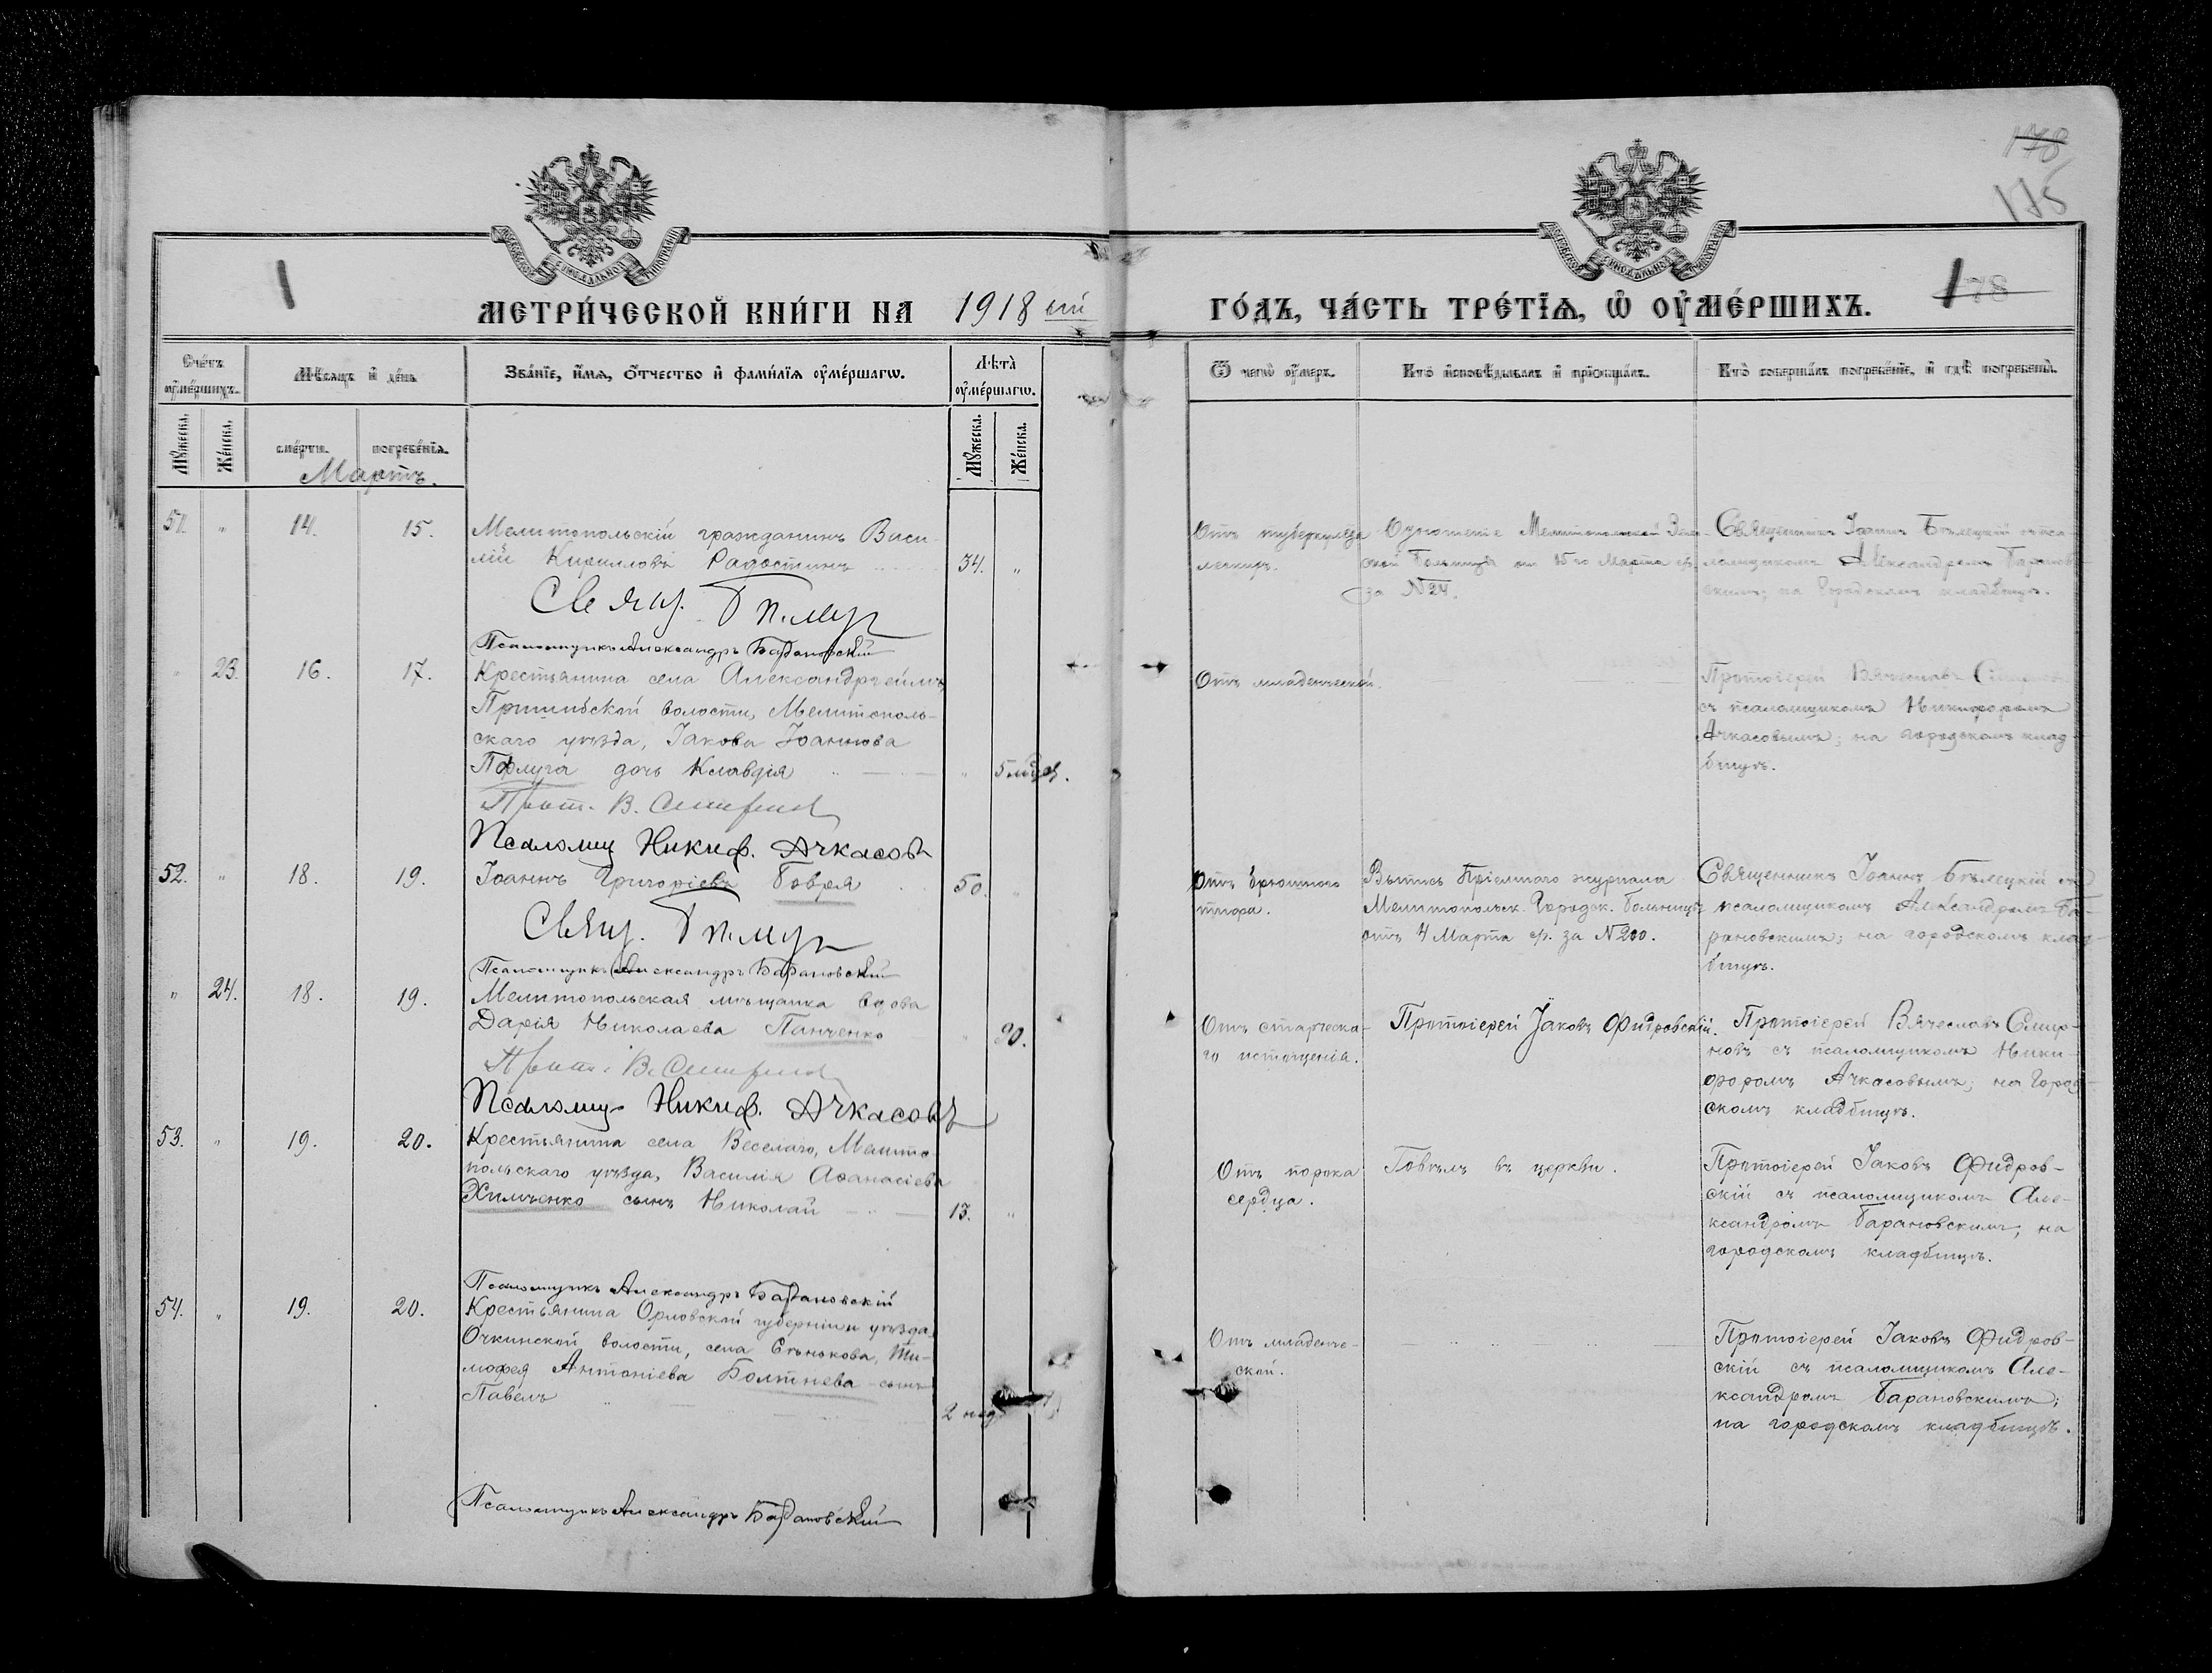 178
175
1
МЕТРИ́ЧЕСКОЙ КНИ́ГИ НА 1918 ый
ГО́ДЪ, ЧА́СТЬ ТРЕ́ТЇѦ, Ѡ҆ ОУ҆МЕ́РШИХЪ.
178
Сче́тъ оу҆ме́ршихъ.
Мѣ́сяцъ и҆ де́нь
Зва́нїе, и҆́мѧ, ѻ҆́тчество и҆ фами́лїѧ оу҆ме́ршагѡ.
Лѣта̀ оу҆ме́ршагѡ.
Ѿ чегѡ̀ оу҆́меръ.
Кто̀ и҆сповѣ́дывалъ и҆ прїѡбща́лъ.
Кто̀ соверша́лъ погребе́нїе, и҆ гдѣ̀ погребены̀.
Мꙋ́жеска.
Же́нска.
сме́рти.
погребе́нїѧ.
Мꙋ́жеска.
Же́нска.
Мартъ.
51. " 14. 15.
Мелитопольскій гражданинъ Васи-
лій Кирилловъ Радостинъ 34. "
Свящ.
Псаломщикъ Александръ Барановскій
Отъ туберкулеза
легкихъ.
Отношеніе Мелитопольской Зем-
ской Больницы отъ 15го Марта с.г.
за №24.
Священникъ Іоаннъ Бѣлецкій съ пса-
ломщикомъ Александромъ Баранов-
скимъ; на Городскомъ кладбищѣ.
" 23. 16. 17.
Крестьянина села Александргеймъ,
Пришибской волости, Мелитополь-
скаго уѣзда, Іакова Іоаннова
Пфлуга дочь Клавдія " 5 мѣс.
Прот. В. Смирнов
Псаломщ Никиф. Ачкасовъ
Отъ младенческой.
Протоіерей Вячеславъ Смирновъ
съ псаломщикомъ Никифоромъ
Ачкасовымъ; на городскомъ клад-
бищѣ.
52. " 18. 19.
Іоаннъ Григоріевъ Бовря 50. "
Свящ.
Псаломщикъ Александръ Барановскій
Отъ брюшного
тифа.
Выпись Пріемнаго журнала
Мелитопольск. Городск. Больницы
отъ 4 Марта с.г. за №200.
Священникъ Іоаннъ Бѣлецкій съ
псаломщикомъ Александромъ Ба-
рановскимъ; на городскомъ клад-
бищѣ.
" 24. 18. 19.
Мелитопольская мѣщанка вдова
Дарія Николаева Панченко " 90.
Прот. В. Смирнов
Псаломщ Никиф. Ачкасовъ
Отъ старческа-
го истощенія.
Протоіерей Іаковъ Фидровскій.
Протоіерей Вячеславъ Смир-
новъ съ псаломщикомъ Ники-
форомъ Ачкасовымъ; на Город-
скомъ кладбищѣ.
53. " 19. 20.
Крестьянина села Веселаго, Мелито-
польскаго уѣзда, Василія Аѳанасіева
Химченко сынъ Николай 13. "
Псаломщикъ Александръ Барановскій
Отъ порока
сердца.
Говѣлъ въ церкви.
Протоіерей Іаковъ Фидров-
скій съ псаломщикомъ Але-
ксандромъ Барановскимъ; на
городскомъ кладбищѣ.
54. " 19. 20.
Крестьянина Орловской губерніи и уѣзда
Очкинской волости, села Сѣнькова, Ти-
моѳея Антоніева Болтнева сынъ
Павелъ 2 нед.
Псаломщикъ Александръ Барановскій
Отъ младенче-
ской.
Протоіерей Іаковъ Фидров-
скій съ псаломщикомъ Але-
ксандромъ Барановскимъ;
на городскомъ кладбищѣ.